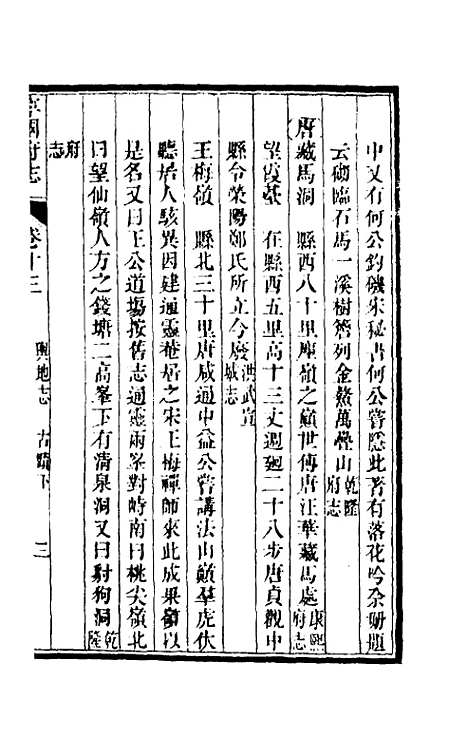 中又有何公釣磯宋秘書何公嘗隱此著有落花吟余姗題
云砌臨石馬一溪樹簷列金鰲萬疊山乾隆府志
唐藏馬洞　縣西八十里庫嶺之巔世傳唐汪華藏馬處康熙府志
望霞臺　在縣西五里高十三丈週廻二十八步唐貞觀中
縣令滎陽鄭氏所立今廢洪武宣城志
王梅嶺　縣北三十里唐咸通中益公嘗講法山巔羣虎伏
聽居人駭異因建通靈菴居之宋王梅禪師來此成果嶺以
是名又曰王公道場按舊志通靈兩峯對峙南曰桃尖嶺北
曰望仙嶺人方之錢塘二高峯下有清泉洞又曰對狗洞乾隆
府志
寧國府志　卷十三　輿地志　古蹟下　三